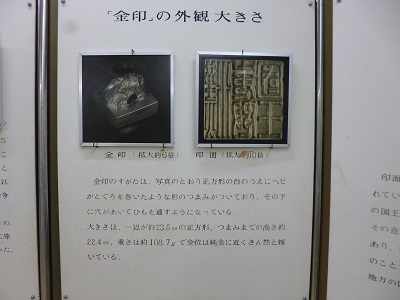 「金印」の外観 大きさ
金印（拡大約6倍）
印面（拡大約10倍）
金印のすがたは、写真のとおり正方形の台のうえにヘビ
がとぐろを巻いたような形のつまみがついており、その下
に穴があいてひもを通すようになっている。
大きさは、一辺が約23.5㎜の正方形、つまみまでの高さ約
22.4㎜、重さは約108.7gで金位は純金に近くさん然と輝
いている。
印面
れてい
の国王
その意
あり、
のこと
地方の国